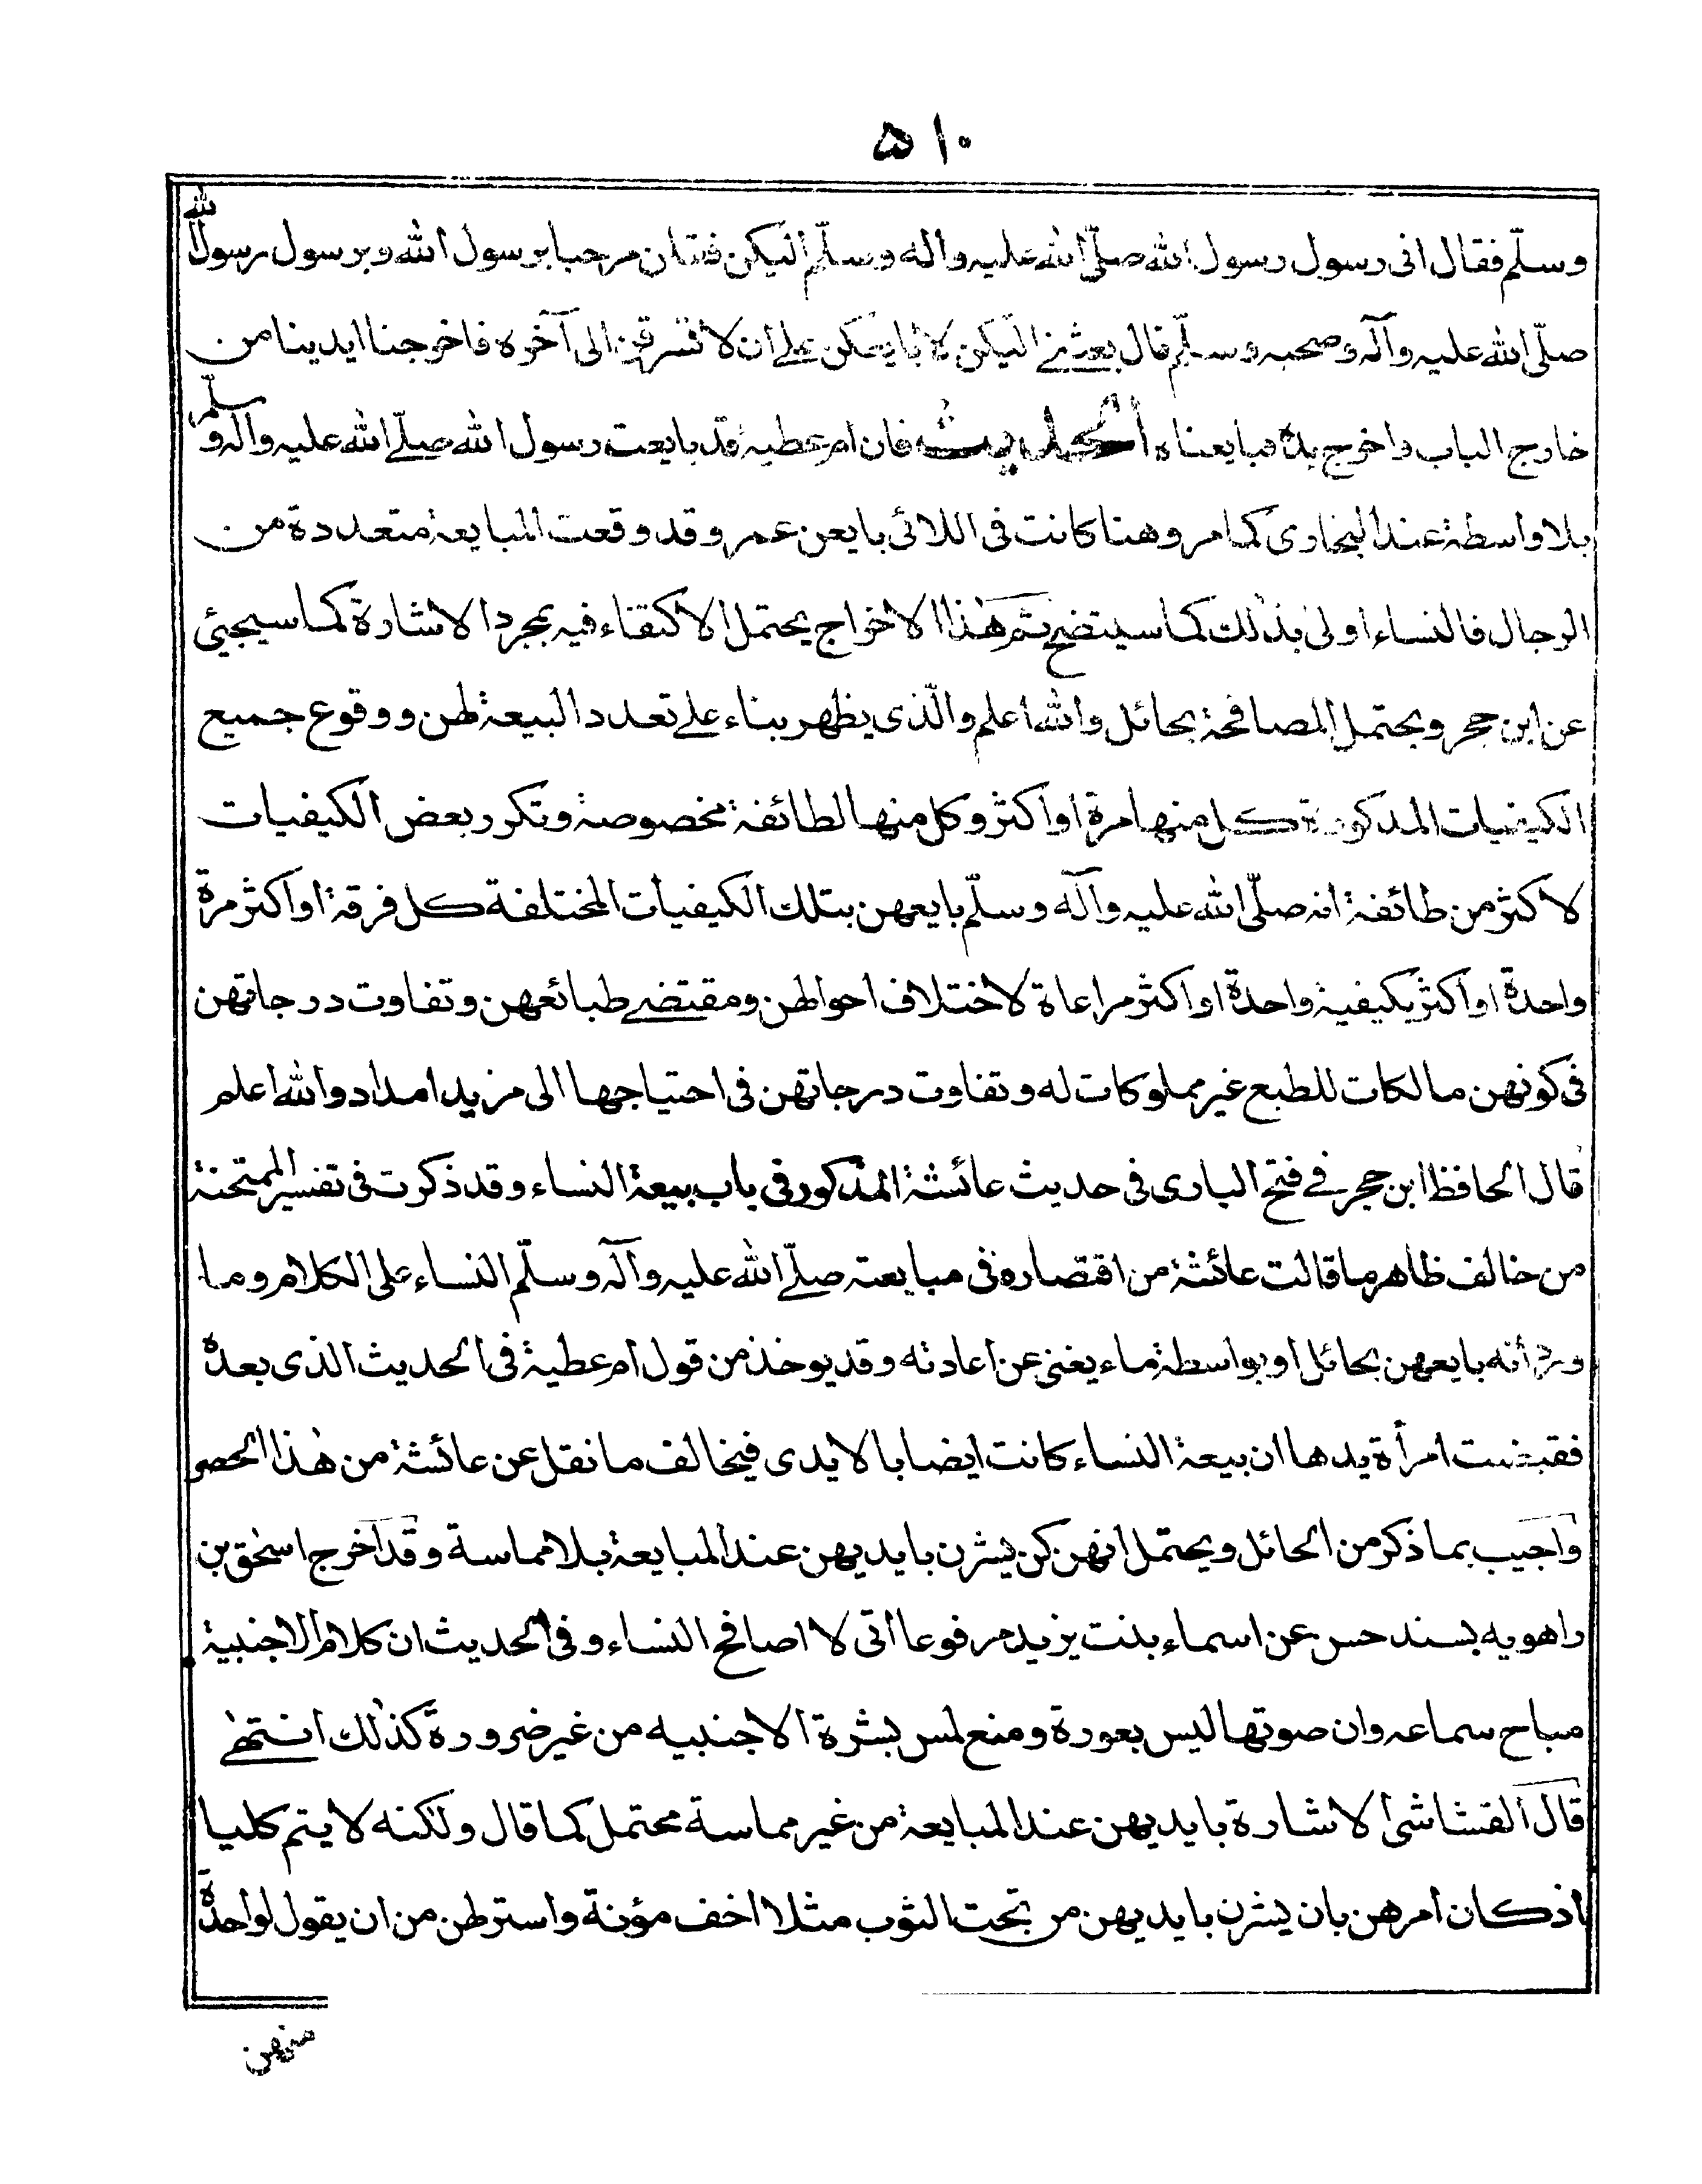 ٥١٠
وسلّم فقال انى رسول رسول الله صلّى الله عليه واله وسلّم اليكن فقلن مرحبا برسول الله وبرسول رسول الله
صلّى الله عليه وآله وصحبه وسلّم قال بعثنى اليكن لابايعكن على ان لا تشركن الى آخره فاخرجنا ايدينا من
خارج الباب واخرج يده فبايعناه الحديث فان ام عطية قد بايعت رسول الله صلّى الله عليه واله وسلّم
بلا واسطة عند البخارى كما مر وهنا كانت فى اللائى بايعن عمر وقد وقعت المبايعة متعددة من
الرجال فالنساء اولى بذلك كما سيتضح ثم هذا الاخراج يحتمل الاكتفاء فيه بمجرد الاشارة كما سيجيئ
عن ابن حجر ويحتمل المصافحة بحائل والله اعلم والّذى يظهر بناء على تعدد البيعة لهن ووقوع جميع
الكيفيات المذكورة كل منها مرة او اكثر وكل منها لطائفة مخصوصة وتكرر بعض الكيفيات
لاكثر من طائفة انه صلّى الله عليه وآله وسلّم بايعهن بتلك الكيفيات المختلفة كل فرقة او اكثر مرة
واحدة او اكثر بكيفية واحدة او اكثر مراعاة لاختلاف احوالهن ومقتضى طبائعهن وتفاوت درجاتهن
فى كونهن مالكات للطبع غير مملوكات له وتفاوت درجاتهن فى احتياجها الى مزيد امداد والله اعلم
قال الحافظ ابن حجر فى فتح البارى فى حديث عائشة المذكور فى باب بيعة النساء وقد ذكرت فى تفسير الممتحنة
من خالف ظاهر ما قالت عائشة من اقتصاره فى مبايعته صلّى الله عليه وآله وسلّم النساء على الكلام وما
ورد أنه بايعهن بحائل او بواسطة ماء يغنى عن اعادته وقد يوخذ من قول ام عطية فى الحديث الذى بعده
فقبضت امرأة يدها ان بيعة النساء كانت ايضا بالايدى فيخالف ما نقل عن عائشة من هذا الحصر
واجيب بما ذكر من الحائل ويحتمل انهن كن يشرن بايديهن عند المبايعة بلا مماسة وقد اخرج اسحق بن
راهويه بسند حسن عن اسماء بنت يزيد مرفوعا انى لا اصافح النساء وفى الحديث ان كلام الاجنبية
مباح سماعه وان صوتها ليس بعورة ومنع لمس بشرة الاجنبيه من غير ضرورة كذلك انتهى
قال القشاشى الاشارة بايديهن عند المبايعة من غير مماسة محتمل كما قال ولكنه لا يتم كليا
اذ كان امرهن بان يشرن بايديهن من تحت الثوب مثلا اخف مؤنة واستر لهن من ان يقول لواحدة
منهن